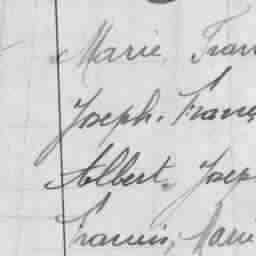 Marie, Fran
Joseph. Franç
Albert. Josep
Francis, Marie